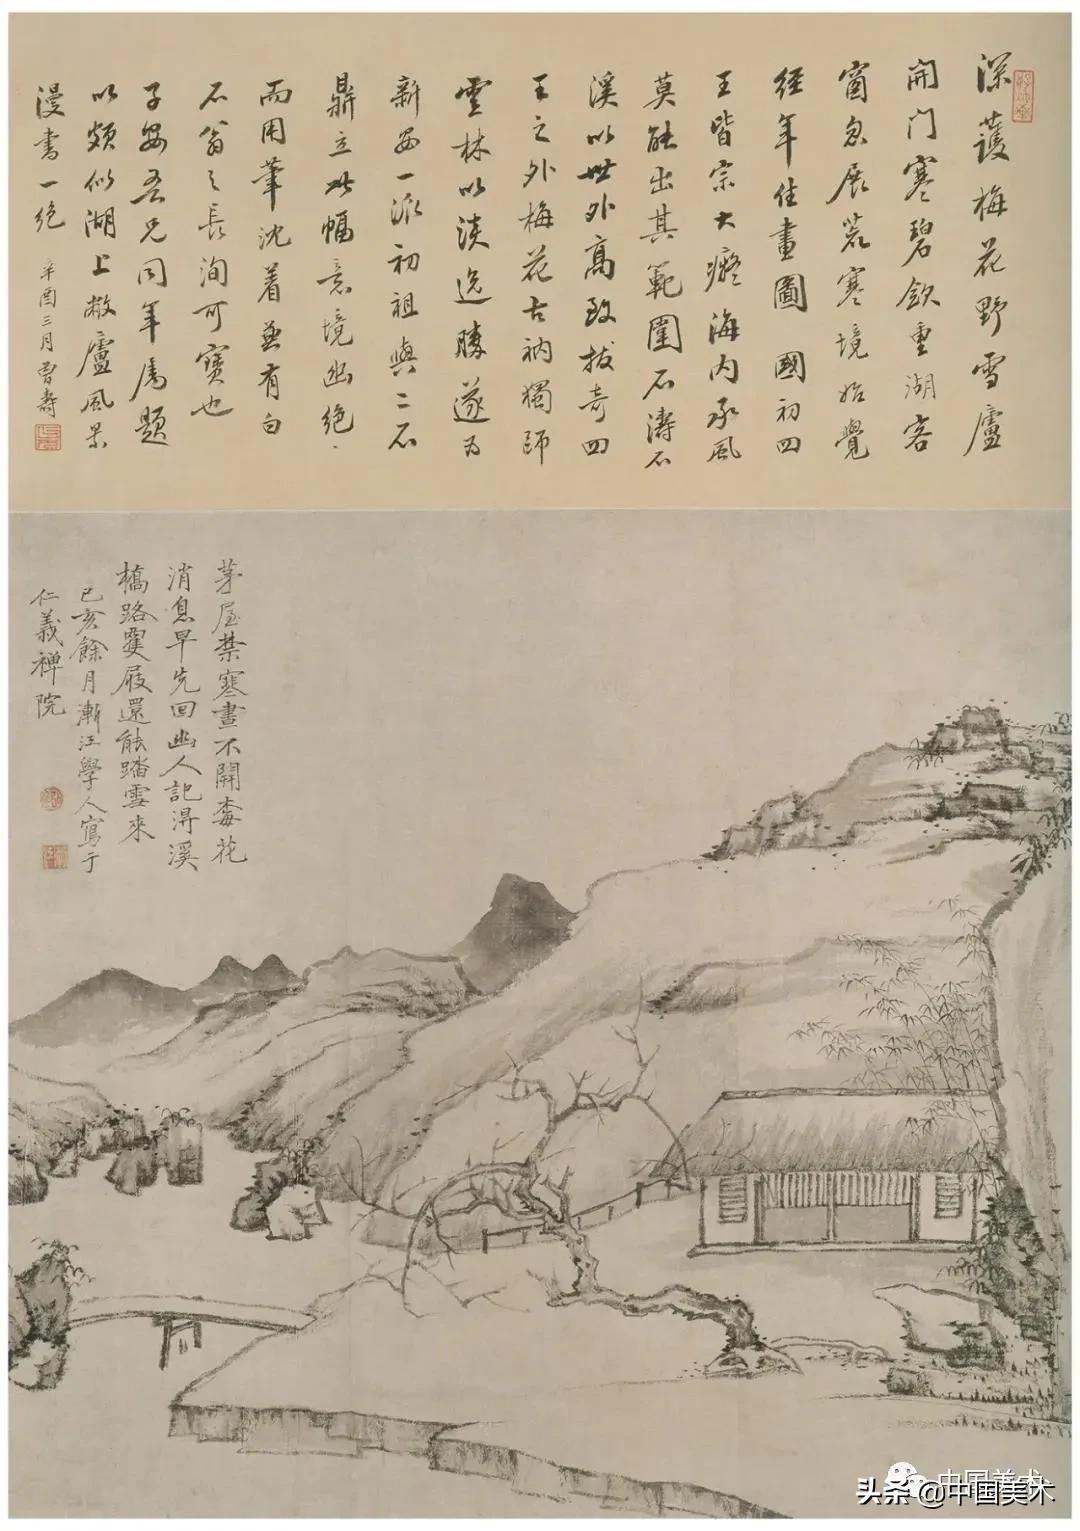 深護梅花野雪廬
開门寒碧飲重湖客
窗忽展荒寒境始覺
經年住畫圖 國初四
王皆宗大癡海内承風
莫能出其範圍石濤石
溪以世外高致拔奇四
王之外梅花古衲獨師
雲林以淡逸勝遂为
新安一派初祖與二石
鼎立此幅意境幽絕
而用筆沈着兼有白
石翁之長洵可寶也
子安吾兄同年属題
以頗似湖上敝廬風景
漫書一絕 辛酉三月曾壽
茅屋禁寒晝不開梅花
消息早先回幽人記得溪
橋路蠟屐還能踏雪來
己亥餘月漸江學人寫于
仁義禪院
中国美术
头条 @中国美术